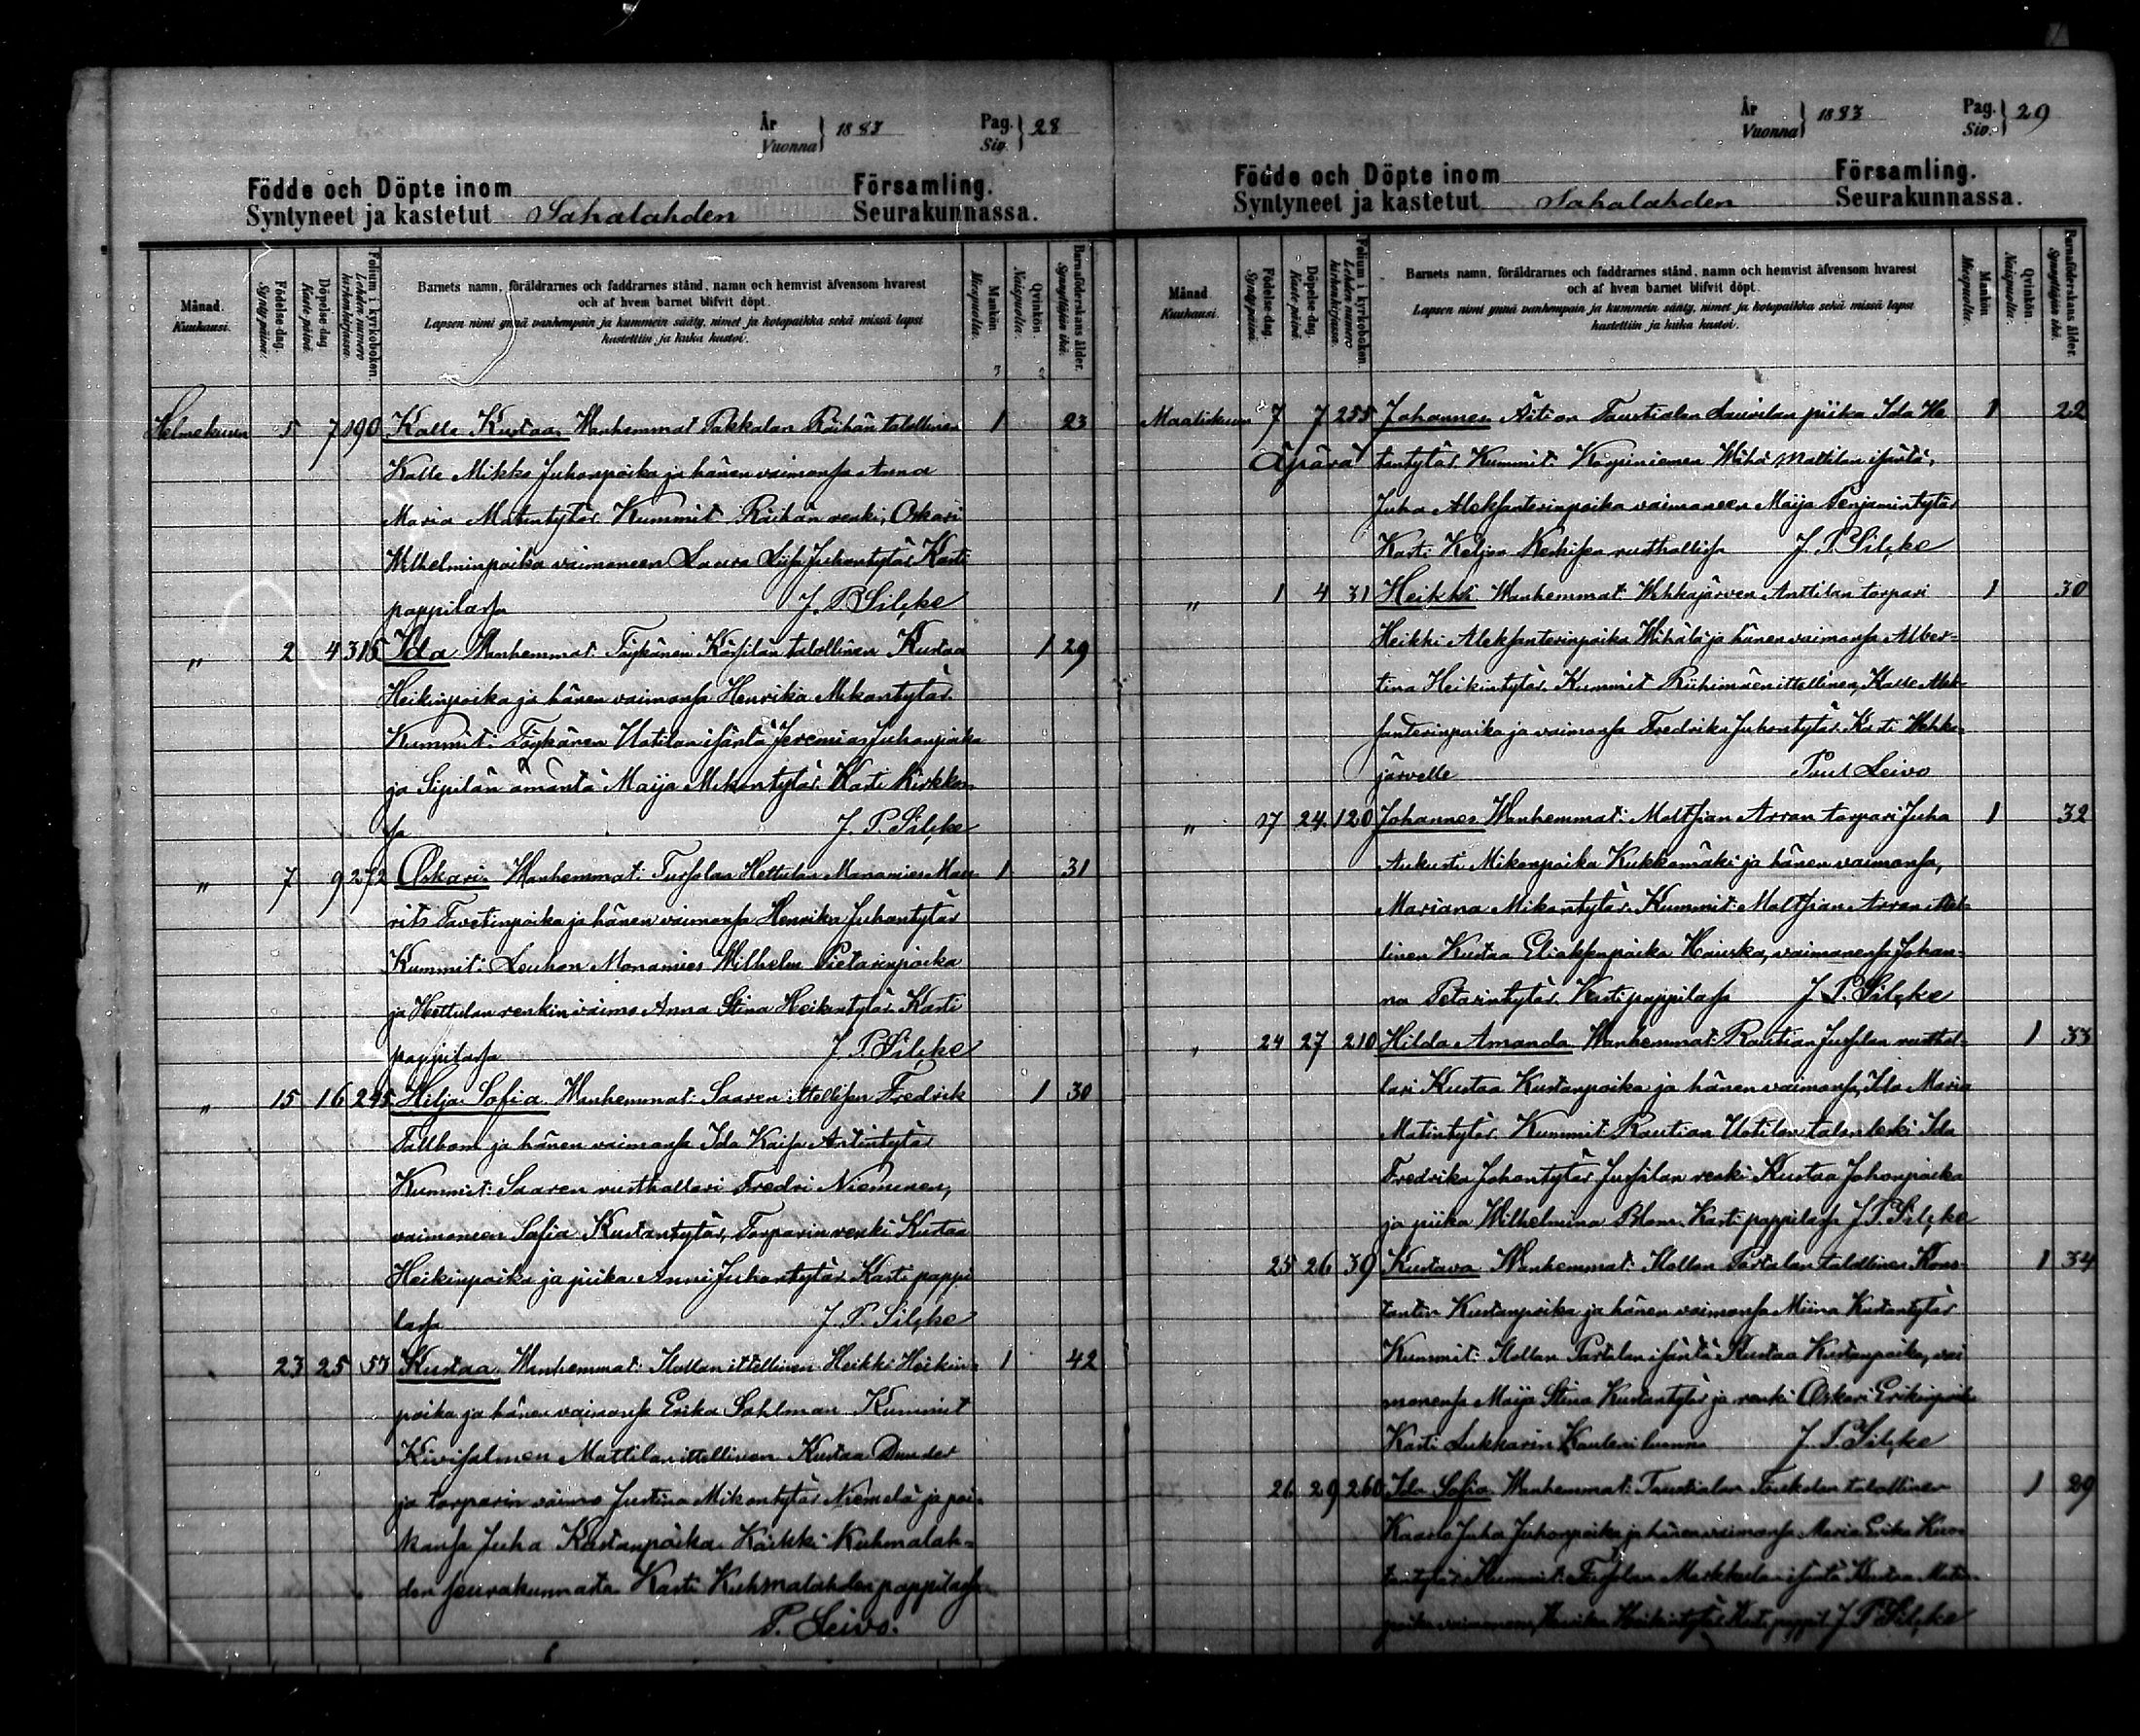 År
Vuonna } 1883 Pag.
Siv. } 28
Födde och Döpte inom Församling.
Syntyneet ja kastetut Sahalahden Seurakunnassa.
Månad. Kuukausi.
Födelse-dag. Syntymäpäivä.
Döpelse-dag. Kaste-päivä.
Folium i kyrkoboken. Lehden numero kirkonkirjassa.
Barnets namn, föräldrarnes och faddrarnes stånd, namn och hemvist äfvensom hvarest
och af hvem barnet blifvit döpt.
Lapsen nimi ynnä vanhempain ja kummein sääty, nimet ja kotopaikka sekä missä lapsi
kastettiin ja kuka kastoi.
Mankön. Miespuolia.
Qvinkön. Naispuolia.
Barnaföderskans ålder. Synnyttäjän ikä.
Helmekuun 5 7 190 Kalle Kustaa. Wanhemmat Pakkalan Räihän talollinen 1 23
Kalle Mikko Juhonpoika ja hänen vaimonsa Anna
Maria Matintytär. Kummit: Räihän renki, Oskari
Wilhelminpoika vaimoneen Laura Liisa Juhontytär Kasti
pappilassa J. P. Silçke
" 2 4 315 Ida Wanhemmat: Töykänän talollinen Kustaa 1 29
Heikinpoika ja hänen vaimonsa Henrika Mikontytär.
Kummit: Töykänän Uotilan isäntä Jeremias Juhonpoika
ja Sipilän ämäntä Maija Mikontytär. Kasti kirkkos-
sa J. P. Silçke
" 7 9 272 Oskari. Wanhemmat: Tursolan Hettulan Manamies Mau- 1 31
rits Tavetinpoika ja hänen vaimonsa Henrika Juhontytär
Kummit: Louhon Monamies Wilhelm Pietarinpoika
ja Hettulan renkin vaimo Anna Stina Heikintytär. Kasti
pappilassa J. P. Silçke
" 15 16 245 Hilja Sofia. Wanhemmat: Saaren ittellisen Fredrik 1 30
Tallbom ja hänen vaimonsa Ida Kaisa Antintytär
Kummit: Saaren rusthollari Fredri Nieminen,
vaimoneen Sofia Kustantytär, Torparin renki Kustaa
Heikinpoika ja piika Anni Juhontytär Kasti pappi
lassa J. P. Silçke
23 25 57 Kustaa. Wanhemmat: ittellinen Heikki Heikin- 1 42
poika ja hänen vaimonsa Erika Sahlman Kummit
Kivisalmen Mattilan ittellinen Kustaa Dunder
ja torparin vaimo Justina Mikontytär Niemelä ja poi-
kansa Juha Kustanpoika. Kaikki Kuhmalah-
den seurakunnasta Kasti Kuhmalahden pappilassa
P. Leivo.
År
Vuonna } 1883 Pag.
Siv. } 29
Födde och Döpte inom Församling.
Syntyneet ja kastetut Sahalahden Seurakunnassa.
Månad. Kuukausi.
Födelse-dag. Syntymäpäivä.
Döpelse-dag. Kaste-päivä.
Folium i kyrkoboken. Lehden numero kirkonkirjassa.
Barnets namn, föräldrarnes och faddrarnes stånd, namn och hemvist äfvensom hvarest
och af hvem barnet blifvit döpt.
Lapsen nimi ynnä vanhempain ja kummein sääty, nimet ja kotopaikka sekä missä lapsi
kastettiin ja kuka kastoi.
Mankön. Miespuolia.
Qvinkön. Naispuolia.
Barnaföderskans ålder. Synnyttäjän ikä.
Maaliskuun 7 7 255 Johannes Äiti on Taustialan Laurilan piika Ida He 1 22
Äpärä tantytär. Kummit: Korpiniemen Wähä Mattilan isäntä,
Juha Aleksanterinpoika vaimoneen Maija Penjamintytär
Kasti Keljon rusthollissa J. P. Silçke
" 1 4 31 Heikki Wanhemmat: Wehkajärven Anttilan torpari 1 30
Heikki Aleksanterinpoika Wähälä ja hänen vaimonsa Alber-
tina Heikintytär. Kummit Riihimäen ittellinen, Kalle Alek-
santerinpoika ja vaimonsa Fredrika Juhontytär. Kasti Wehka-
järvelle Paul Leivo
" 17 24 120 Johannes Wanhemmat: Moltsian Arran torpari Juha 1 32
Aukusti Mikonpoika Kukkomäki ja hänen vaimonsa,
Mariana Mikontytär. Kummit: Moltsian Arran ittel-
linen Kustaa Eliaksenpoika Hauska, vaimonensa Johan-
na Petarintytär. Kasti pappilassa J. P. Silçke
" 24 27 210 Hilda Amanda Wanhemmat: Rautian Jussilan rusthol- 1 33
lari Kustaa Kustanpoika ja hänen vaimonsa, Ida Maria
Matintytär. Kummit Rautian Uotilan talon leski Ida
Fredrika Johantytär Jussilan renki Kustaa Johonpoika
ja piika Wilhelmina Blom. Kasti pappilassa J. P. Silçke
25 26 39 Kustava Wanhemmat: Partalan talollinen Kons- 1 34
tantin Kustanpoika ja hänen vaimonsa Miina Kustantytär
Kummit: Partalan isäntä Kustaa Kustanpoika, vai
monensa Maija Stina Kustantytär ja renki Oskari Erikinpoika
Kasti Lukkarin luonna J. P. Silçke
26 29 260 Ida Sofia Wanhemmat: Taustialan talollinen 1 29
Kaarlo Juha Juhonpoika ja hänen vaimonsa Maria Erika Kus-
tantytär Kummit: isäntä Kustaa Matin-
poika vaimoneen, Henrika Heikintytär Kasti pappil. J. P. Silçke